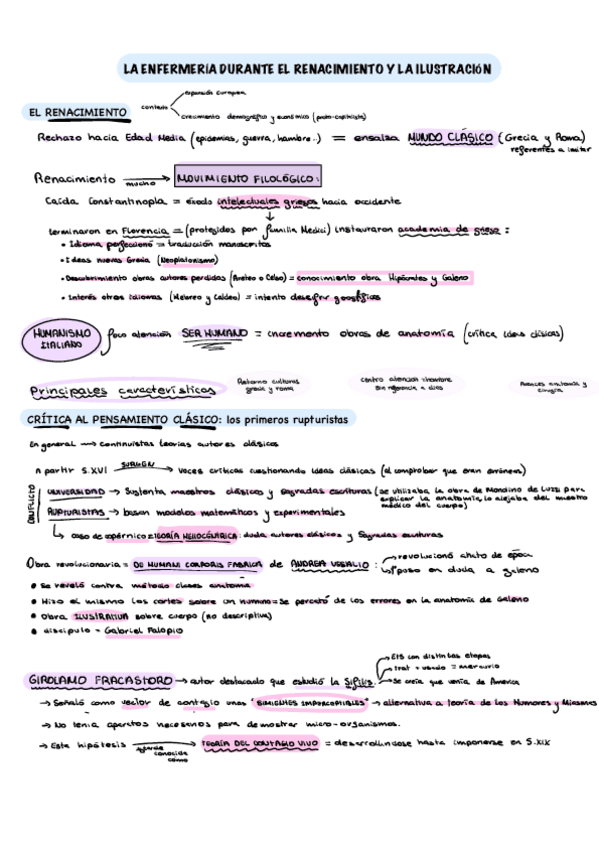 LA ENFERMERIA DURANTE EL RENACIMIENTO Y LA ILUSTRACIÓN
expansión europea
EL RENACIMIENTO contexto
crecimiento demográfico y económico (proto-capitalista)
Rechazo hacia Edad Media (epidemias, guerra, hambre..) = ensalza MUNDO CLÁSICO (Grecia y Roma)
referentes a imitar
Renacimiento mucho MOVIMIENTO FILOLÓGICO:
Caída Constantinopla = éxodo intelectuales griegos hacia occidente
terminaron en Florencia = (protegidos por familia Medici) instauraron academia de griego :
• Idioma perfeccionó = traducción manuscritos
• Ideas nuevas Grecia (Neoplatonismo)
• Descubrimiento obras autores perdidas (Areteo o Celso) = conocimiento obra Hipócrates y Galeno
• Interés otros idiomas (Hebreo y Caldeo) = intento descifrar jeroglíficos
HUMANISMO ITALIANO foco atención SER HUMANO = incremento obras de anatomía (crítica ideas clásicas)
Principales características
Retorno culturas grecia y roma
Centro atención = hombre sin referencia a dios
Avances anatomía y cirugía
CRÍTICA AL PENSAMIENTO CLÁSICO: los primeros rupturistas
En general → continuistas teorías autores clásicos
A partir S.XVI SURGEN → voces críticas cuestionando ideas clásicas (al comprobar que eran erróneas)
CONFLICTO
UNIVERSIDAD → Sustenta maestros clásicos y sagradas escrituras (se utilizaba la obra de Mondino de Luzzi para
explicar la anatomía, lo alejaba del maestro
médico del cuerpo)
RUPTURISTAS → basan modelos matemáticos y experimentales
caso de copérnico = TEORÍA HELIOCÉNTRICA: duda autores clásicos y Sagradas escrituras
Obra revolucionaria = DE HUMANI CORPORIS FABRICA de ANDREA VESALIO :
revolucionó ámbito de época
puso en duda a galeno
• Se reveló contra método clases anatomía
• Hizo él mismo los cortes sobre un humano = Se percató de los errores en la anatomía de Galeno
• Obra ILUSTRATIVA sobre cuerpo (no descriptiva)
• discípulo = Gabriel Falopio
GIROLAMO FRACASTORO → autor destacado que estudió la Sífilis.
ETS con distintas etapas
trat + usado = mercurio
Se creía que venía de America
→ Señaló como vector de contagio unas "SIMIENTES IMPERCEPTIBLES" → alternativa a teoría de los Humores y Miasmas
→ No tenía aparatos necesarios para demostrar micro-organismos.
→ Esta hipótesis conocida como TEORÍA DEL CONTAGIO VIVO = desarrollándose hasta imponerse en S.XIX